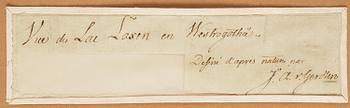 Vue du Lac Laxen en Westrogothie.
Desiné d'après nature par
J. A. v. Gerdten